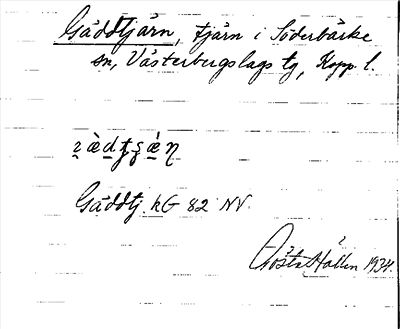 Gäddtjärn, tjärn i Söderbärke
sn, Västerbergslags tg, Kopp. l.
Gäddtj. kG 82 NV.
Gösta Hallén 1934.